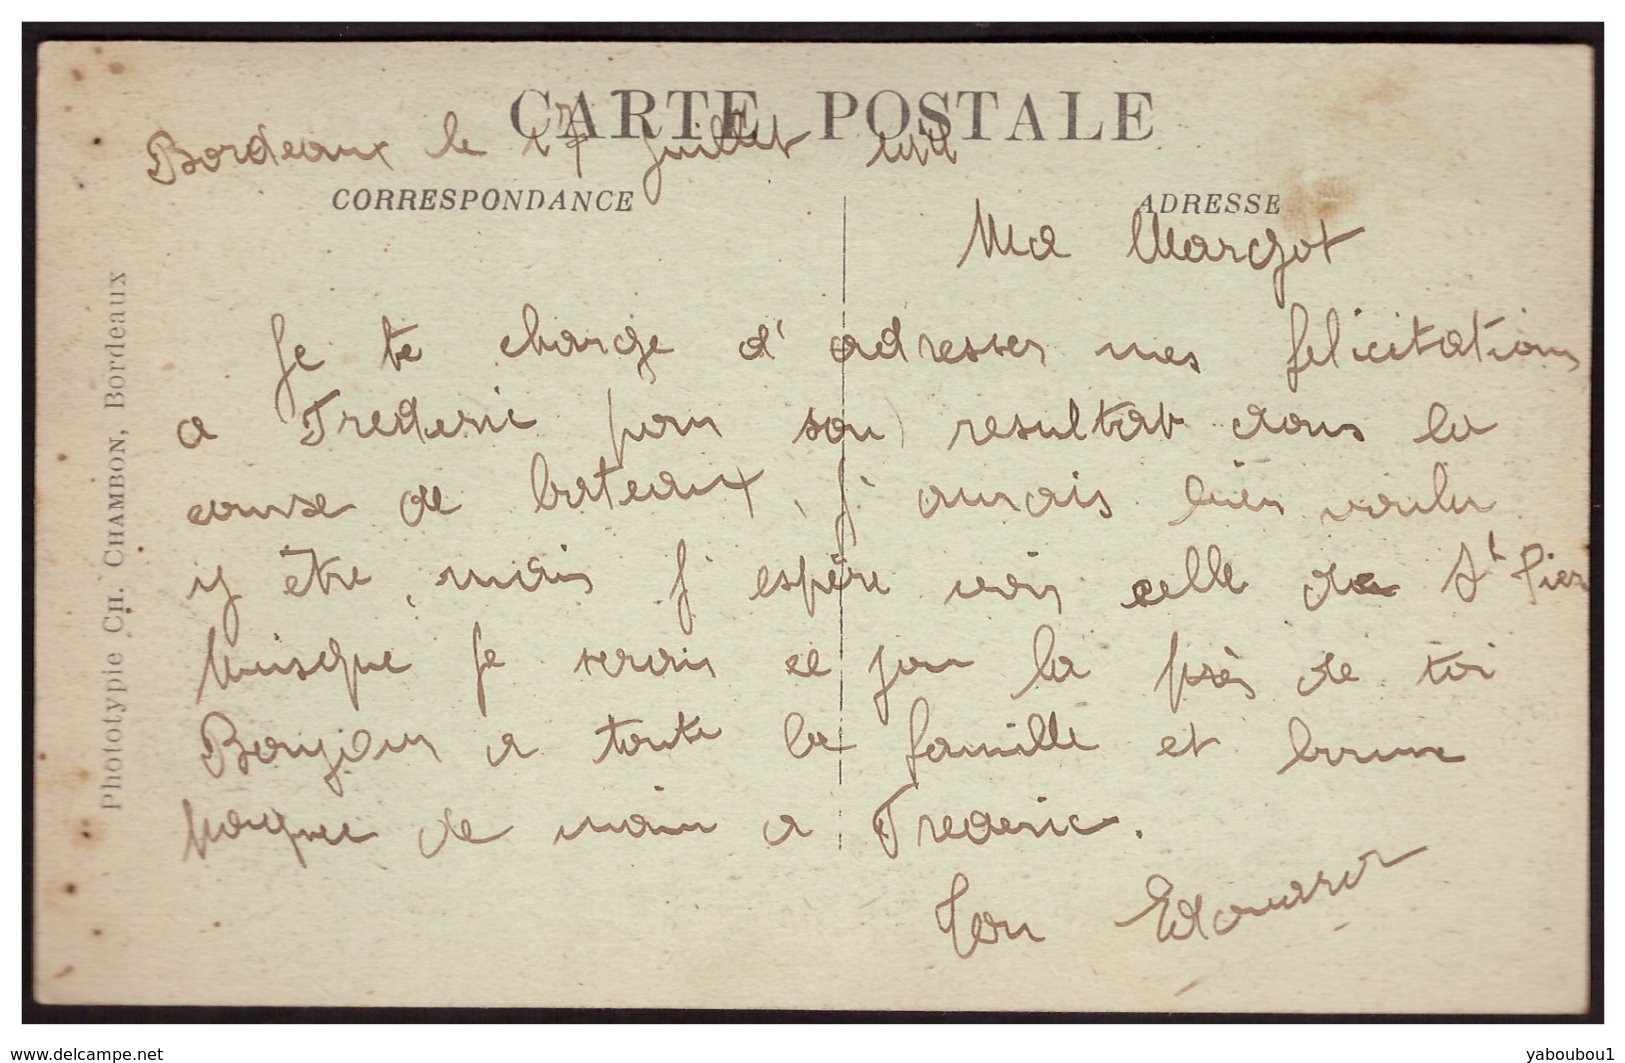 CARTE POSTALE
Bordeaux le 17 Juillet
CORRESPONDANCE
ADRESSE
Ma Margot
Je te charge d'adresser mes felicitations
a Frederic pour son resultat dans la
course de bateaux, j'aurais bien voulu
y être, mais j'espère voir celle de St Pier
puisque je serais ce jour la près de toi
Bonjour a toute la famille et bonne
de main a Frederic.
Ton Edouard
Phototypie CH. CHAMBON, Bordeaux
www.delcampe.net
yaboubou1